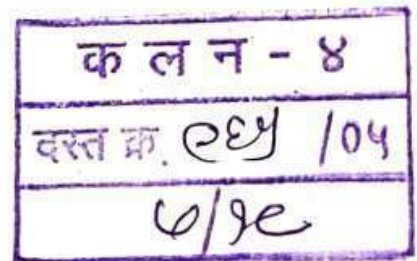 क ल न - ४
दस्त क्र. ९६५ /०५
७/१९